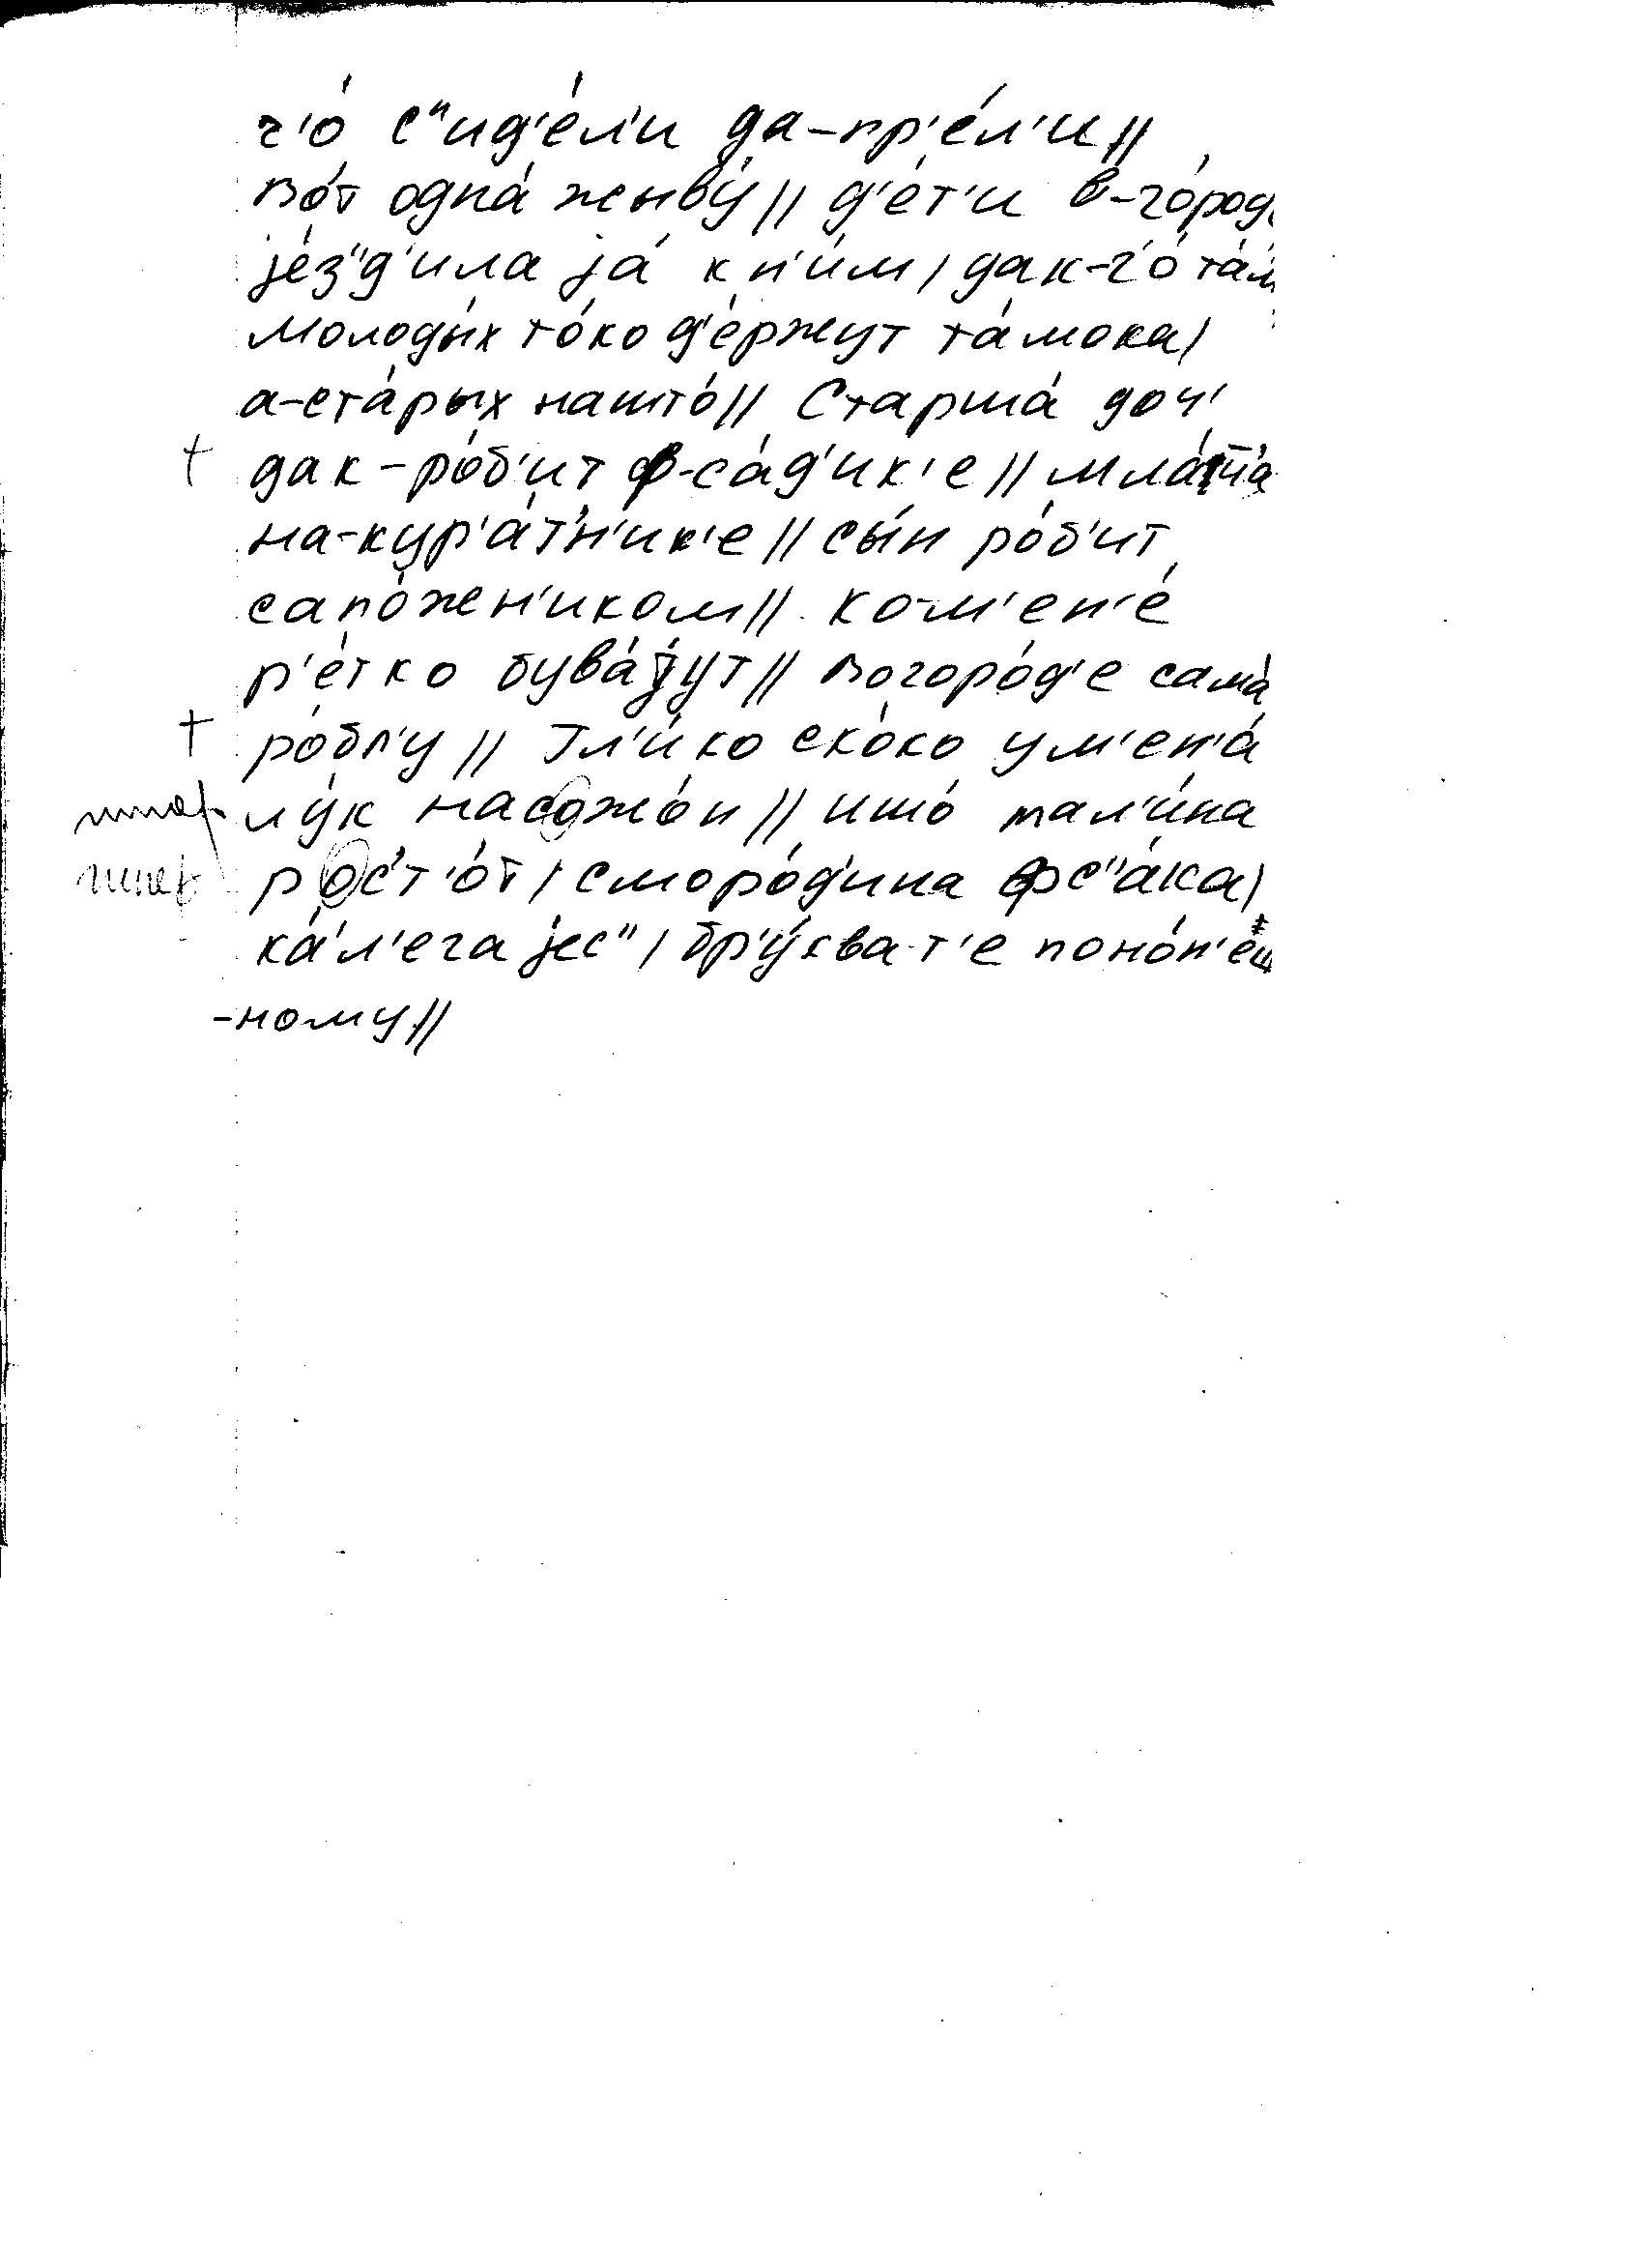 ч'о́ с"ид'е́л'и да-пр'е́л'и//
вот одна́ жыву́// д'е́т'и в-го́род'
jе́з"д'ила jа́ к н'и́м/ дак-ч'о́ та́м
молоды́х то́ко д'е́ржут та́мока/
а-ста́рых нашто́// Старша́ доч'
дак-ро́б'ит ф-са́д'ик'е//
на-кур'а́т'н'ик'е// сы́н ро́б'ит
сапо́жен'иком// ко-м'ен'е́
р'е́тко бува́jут// вогоро́д'е сама́
ро́бл'у// Гл'и́ко ско́ко у м'ен'а́
лу́к насожо́н// ишо́ мал'и́на
рос'т'о́т/ сморо́д'ина фс"а́ка/
ка́л'ега jес"/ бр'у́хва-т'е поно́н'еш
-ному//